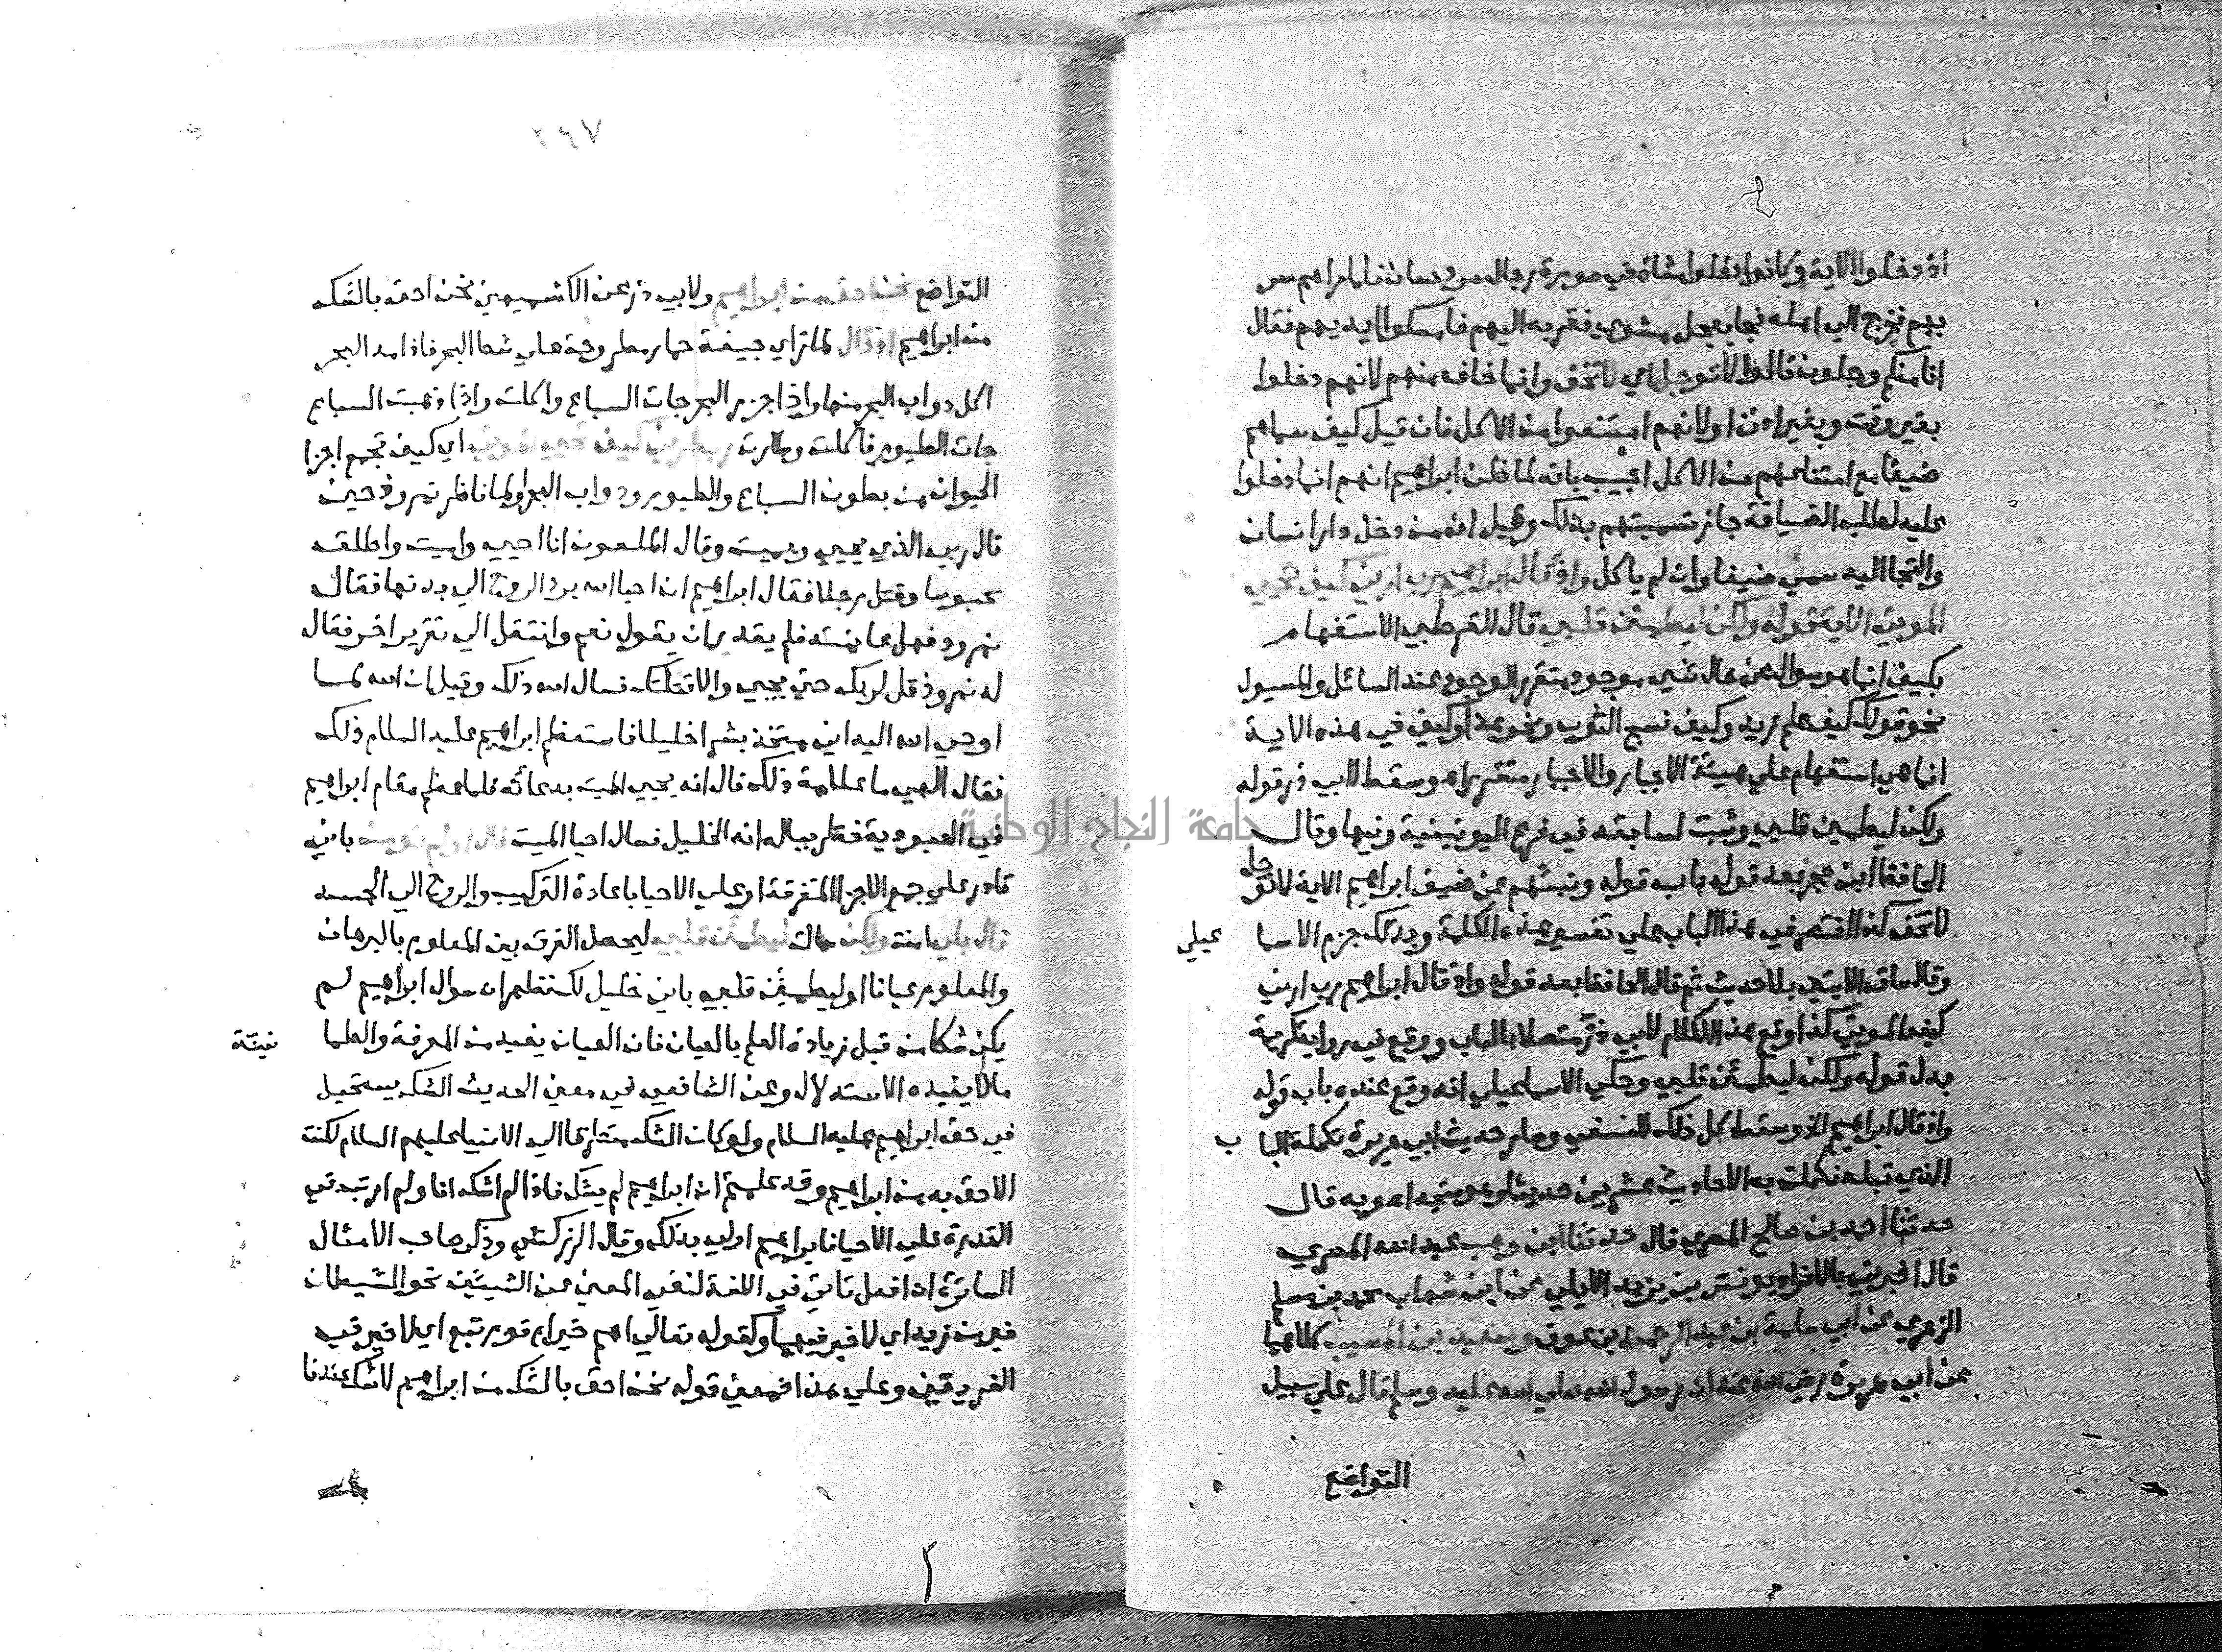 اذ دخلوا الاية وكانوا دخلوا مشاة في صورة رجال مرد حسان فلما راهم سر
بهم فخرج الي اهله فجا بعجل مشوي فقربه اليهم فامسكوا ايديهم فقال
انا منكم وجلون قالوا لا توجل اي لا تخف وانما خاف منهم لانهم دخلوا
بغير وقت وبغير اذن او لانهم امتنعوا من الاكل فان قيل كيف سماهم
ضيفا مع امتناعهم من الاكل اجيب بانه لما ظن ابراهيم انهم انما دخلوا
عليه لطلب الضيافة جاز تسميتهم بذلك وقيل ان من دخل دار انسان
والتجا اليه سمي ضيفا وان لم ياكل واذ قال ابراهيم رب ارني كيف تحيي
الموتي الاية قوله ولكن ليطمئن قلبي قال القرطبي الاستفهام
بكيف انما هو سوال عن حال شي موجود متقرر الوجود عند السائل والمسيول
نحو قولك كيف علم زيد وكيف نسج الثوب ونحو هذا وكيف في هذه الاية
انما هي استفهام علي هيئة الاحيا والاحيا متقرر اهـ وسقط لابي ذر قوله
ولكن ليطمئن قلبي وثبت لسابقه في فرع اليونينية وفيها وقال
الحافظ ابن حجر بعد قوله باب قوله ونبئهم عن ضيف ابراهيم الاية لا توجل
لا تخف كذا اقتصر في هذا الباب علي تفسير هذه الكلمة وبذلك جزم الاسما عيلي
وقال ساق الايتين بلا حديث ثم قال الحافظ بعد قوله واذ قال ابراهيم رب ارني
كيف الموتي كذا وقع هذا الكلام لابي ذر متصلا بالباب ووقع في رواية كريمة
بدل قوله ولكن ليطمئن قلبي وحكي الاسماعيلي انه وقع عنده باب قوله
واذ قال ابراهيم الخ وسقط كل ذلك للنسفي وصار حديث ابي هريرة تكملة البا ب
الذي قبله فكملت به الاحاديث عشرين حديثا وهو متجه اهـ وبه قال
حدثنا احمد بن صالح المصري قال حدثنا ابن وهب عبد الله المصري
قال اخبرني بالافراد يونس بن يزيد الايلي عن ابن شهاب محمد بن مسلم
الزهري عن ابي سلمة بن عبد الرحمن بن عوف وسعيد بن المسيب كلاهما
عن ابي هريرة رضي الله عنه ان رسول الله صلي الله عليه وسلم قال علي سبيل
التواضع
٢٤٧
التواضع نحن احق من ابراهيم ولابي ذر عن الكشميهني نحن احق بالشك
من ابراهيم اذ قال لما راي جيفة حمار مطروحة علي شط البحر فاذا مد البحر
اكل دواب البحر منها واذا جزر البحر جات السباع واكلت واذا ذهبت السباع
جات الطيور فاكلت وطارت رب ارني كيف تحيي الموتي اي كيف تجمع اجزا
الحيوان من بطون السباع والطيور ودواب البحر او لما ناظر نمروذ حين
قال ربي الذي يحيي ويميت وقال الملعون انا احيي واميت واطلق
محبوسا وقتل رجلا فقال ابراهيم ان احيا الله برد الروح الي بدنها فقال
نمرود فهل عاينته فلم يقدر ان يقول نعم وانتقل الي تقرير اخر فقال
له نمروذ قل لربك حتي يحيي والا قتلتك فسال الله ذلك وقيل ان الله لما
اوحي الله اليه اني متخذ بشرا خليلا فاستعظم ابراهيم عليه السلام ذلك
فقال الهي ما علامة ذلك قال انه يحيي الميت بدعائه فلما عظم مقام ابراهيم
في العبودية خطر بباله انه الخليل فسال احيا الميت قال اولم تؤمن باني
قادر علي جمع الاجزا المتفرقة او علي الاحيا باعادة التركيب والروح الي الجسد
قال بلي امنت ولكن سالت ليطمئن قلبي ليحصل الفرق بين المعلوم بالبرهان
والمعلوم عيانا او ليطمئن قلبي باني خليل لك فظهر ان سوال ابراهيم لم
يكن شكا من قبل زيادة العلم بالعيان فان العيان يفيد من المعرفة والطما نينة
ما لا يفيده الاستدلال وعن الشافعي في معني الحديث الشك يستحيل
في حق ابراهيم عليه السلام ولو كان الشك متطرقا الي الانبيا عليهم السلام لكنت
الاحق به من ابراهيم وقد علمتم ان ابراهيم لم يشك فاذا لم اشك انا ولم ارتب في
القدرة علي الاحيا فابراهيم اولي بذلك وقال الزركشي وذكر صاحب الامثال
السائرة ان افعل تاتي في اللغة لنفي المعني عن الشيئين نحو الشيطان
خير من زيد اي لا خير فيهما وكقوله تعالي اهم خير ام قوم تبع اي لا خير في
الفريقين وعلي هذا فمعني قوله نحن احق بالشك من ابراهيم لا شك عندنا
جامعة النجاح الوطنية